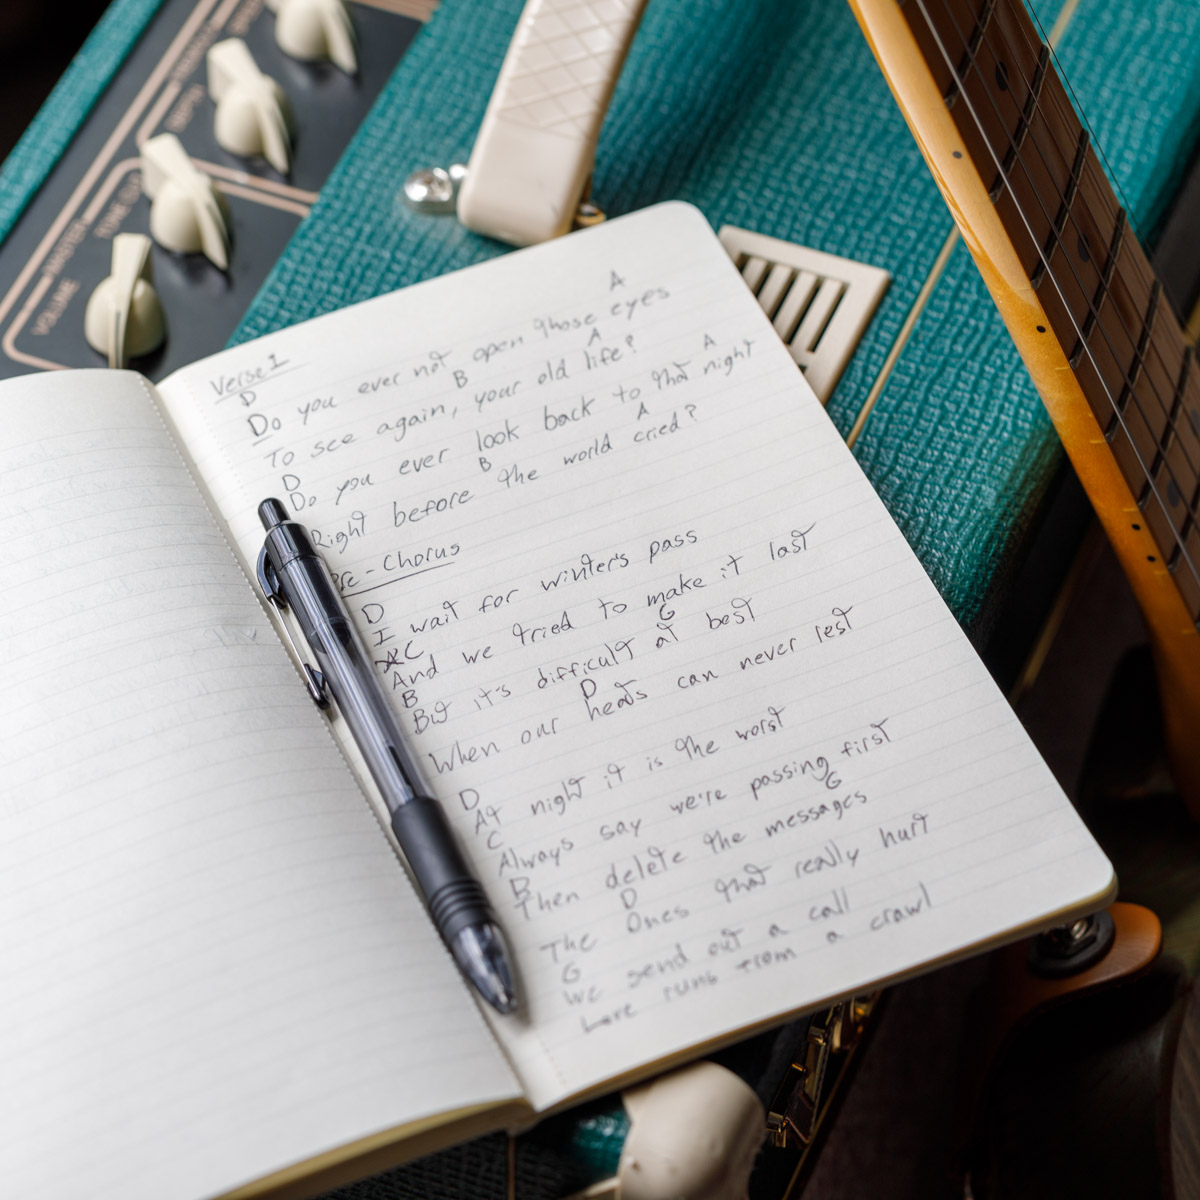 VOLUME
MASTER
TONE CUT
Verse 1
A
Do you ever not open those eyes
D
B A
To see again, your old life?
A
Do you ever look back to that night
D
B A
Right before the world cried?
Pre-Chorus
D
I wait for winter's pass
C
And we tried to make it last
B G
But it's difficult at best
D
When our heads can never rest
D
At night it is the worst
C
Always say we're passing first
B G
Then delete the messages
D
The Ones that really hurt
G
We send out a call
runs from a crawl